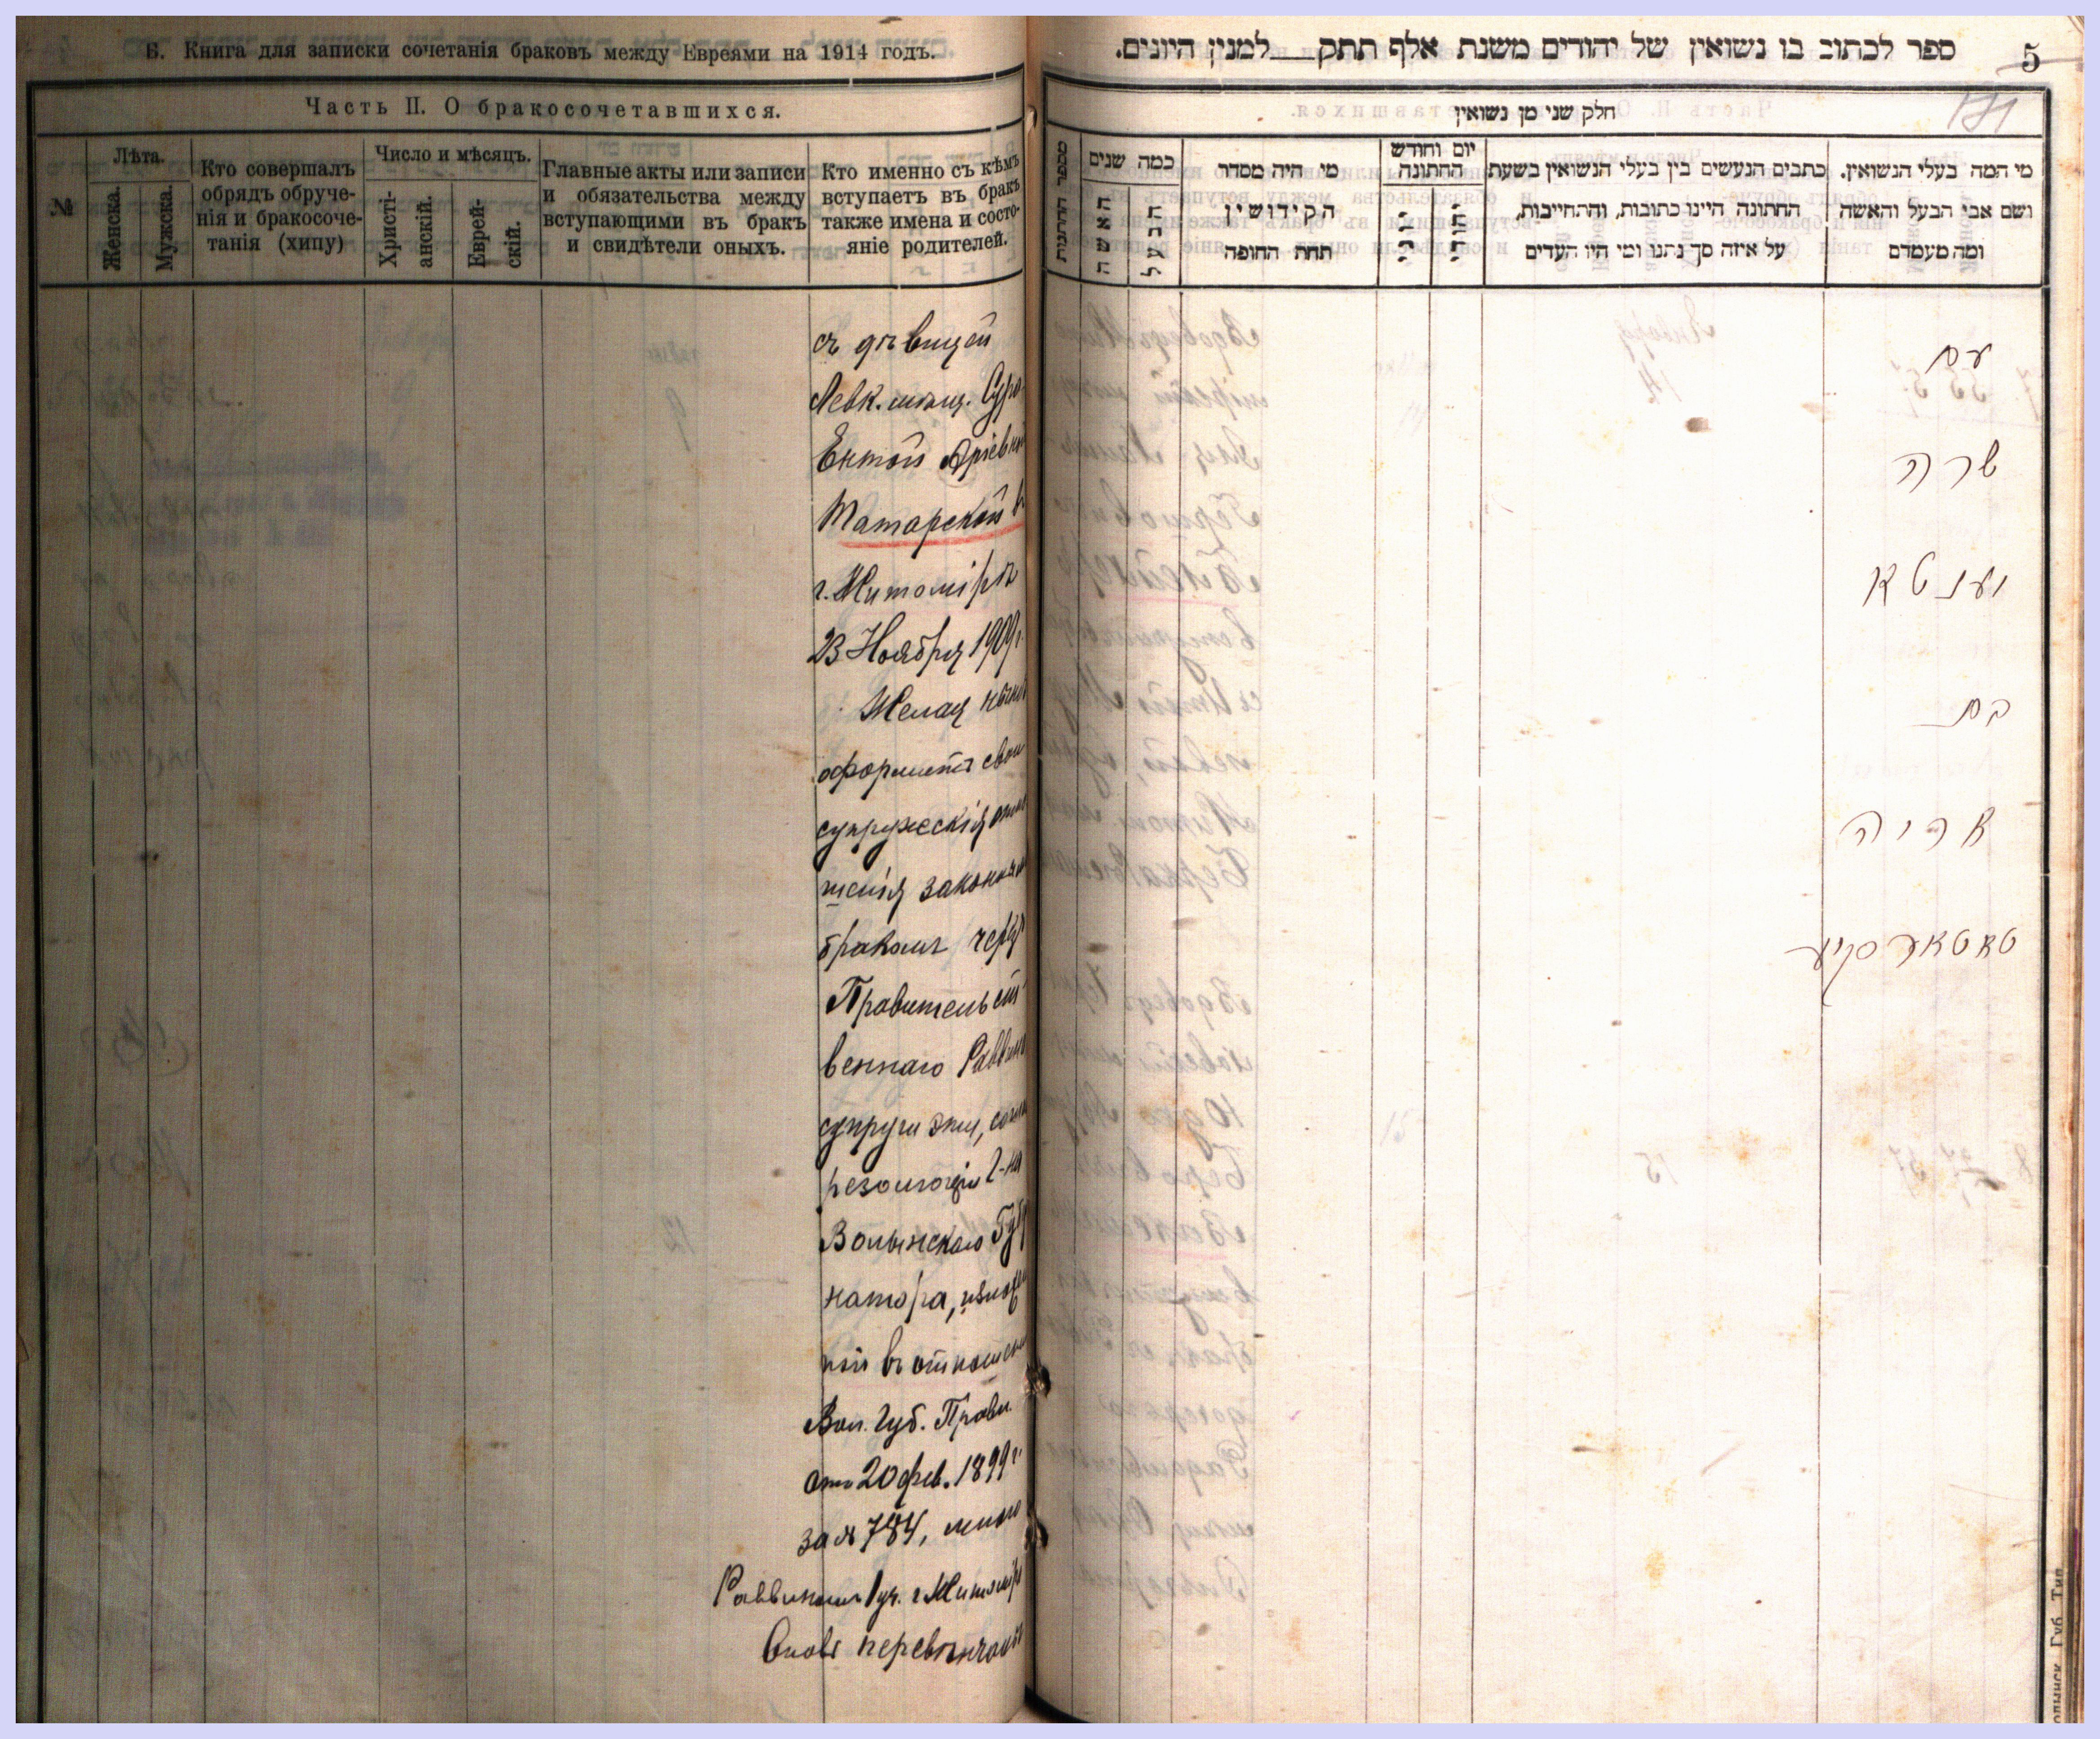 Б. Книга для записки сочетанія браковъ между Евреями на 1914 годъ.
Часть II. О бракосочетавшихся.
№
Лѣта.
Женска.
Мужска.
Кто совершалъ
обрядъ обруче-
нія и бракосоче-
танія (хипу)
Число и мѣсяцъ.
Христі-
анскій.
Еврей-
скій.
Главные акты или записи
и обязательства между
вступающими въ бракъ
и свидѣтели оныхъ.
Кто именно съ кѣмъ
вступаетъ въ бракъ
также имена и состо-
яніе родителей.
съ дѣвицей
Левк. мѣщ. Сура
Ентой Аріевной
Татарской въ
г. Житомірѣ
23 Ноября 1909 г.
Желая нынѣ
оформить свои
супружескія отно
шенія законнымъ
бракомъ черезъ
Правительст
веннаго Раввина
супруги эти, согл
резолюціи Г-на
Волынскаго Губ
натора, изложен
ной въ отношеніи
Вол. Губ. Правл.
отъ 20 фев. 1899 г.
за № 784, мною
Раввиномъ 1 уч. г. Житоміра
Вновь перевѣнчаны
ספר לכתוב בו נשואין של יהודים משנת אלף תתק למנין היונים.
5
181
חלק שני מן נשואין
מספר החתונות
כמה שנים
האשה
הבעל
מי היה מסדר
הקידושין
תחת החופה
יום וחודש
החתונה
כתבים הנעשים בין בעלי הנשואין בשעת
החתונה היינו כתובות, והתחייבות,
על איזה סך נתנו ומי היו העדים
מי המה בעלי הנשואין.
ושם אבי הבעל והאשה
ומה מעמדם
עם
שרה
יענטא
בת
אריה
טאטארסקיע
Губ. Тип.